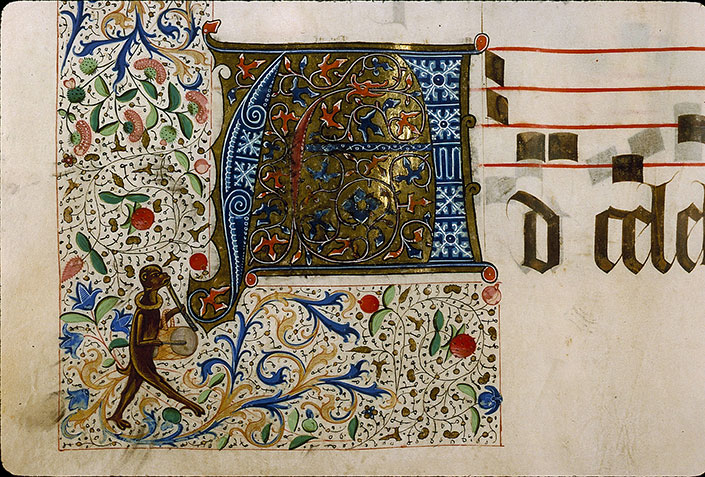 Ad cele